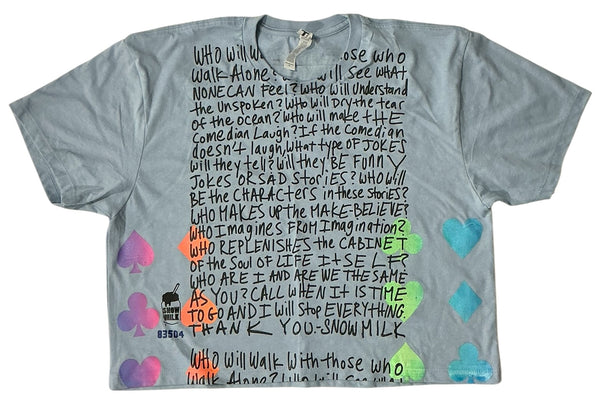 WHO Will Wa th those who
walk Alone? WHO will See WHAT
NONE CAN Feel? WHO Will Understand
the Unspoken? WHO will DRy the tear
of the ocean? WHO will make THE
Comedian Laugh? If the Comedian
doesn't laugh, What type of JOKES
will they tell? Will they BE FUNNY
JOKES OR SAD Stories? WHO Will
BE the CHARACTERS in these Stories?
WHO MAKES UP the MAKE-BELIEVE?
WHO Imagines FROM Imagination?
WHO REPLENISHES the CABINET
Of the Soul OF LIFE ItSELF?
WHO ARE I AND ARE WE THE SAME
AS YOU? CALL WHEN It IS TIME
TO GO AND I Will Stop EVERYTHING.
THANK YOU-SNOWMILK
SNOW
MILK
83504
WHO Will Walk With those who
Walk Alone? WHO Will See what